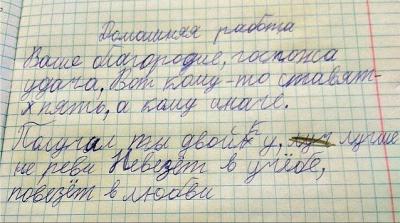 Домашняя работа
Ваше благородие, госпожа
удача. Вот кому-то ставят
пять, а кому иначе.
Палучил ты двойку, лучше
не реви Невезёт в учёбе,
повезёт в любви